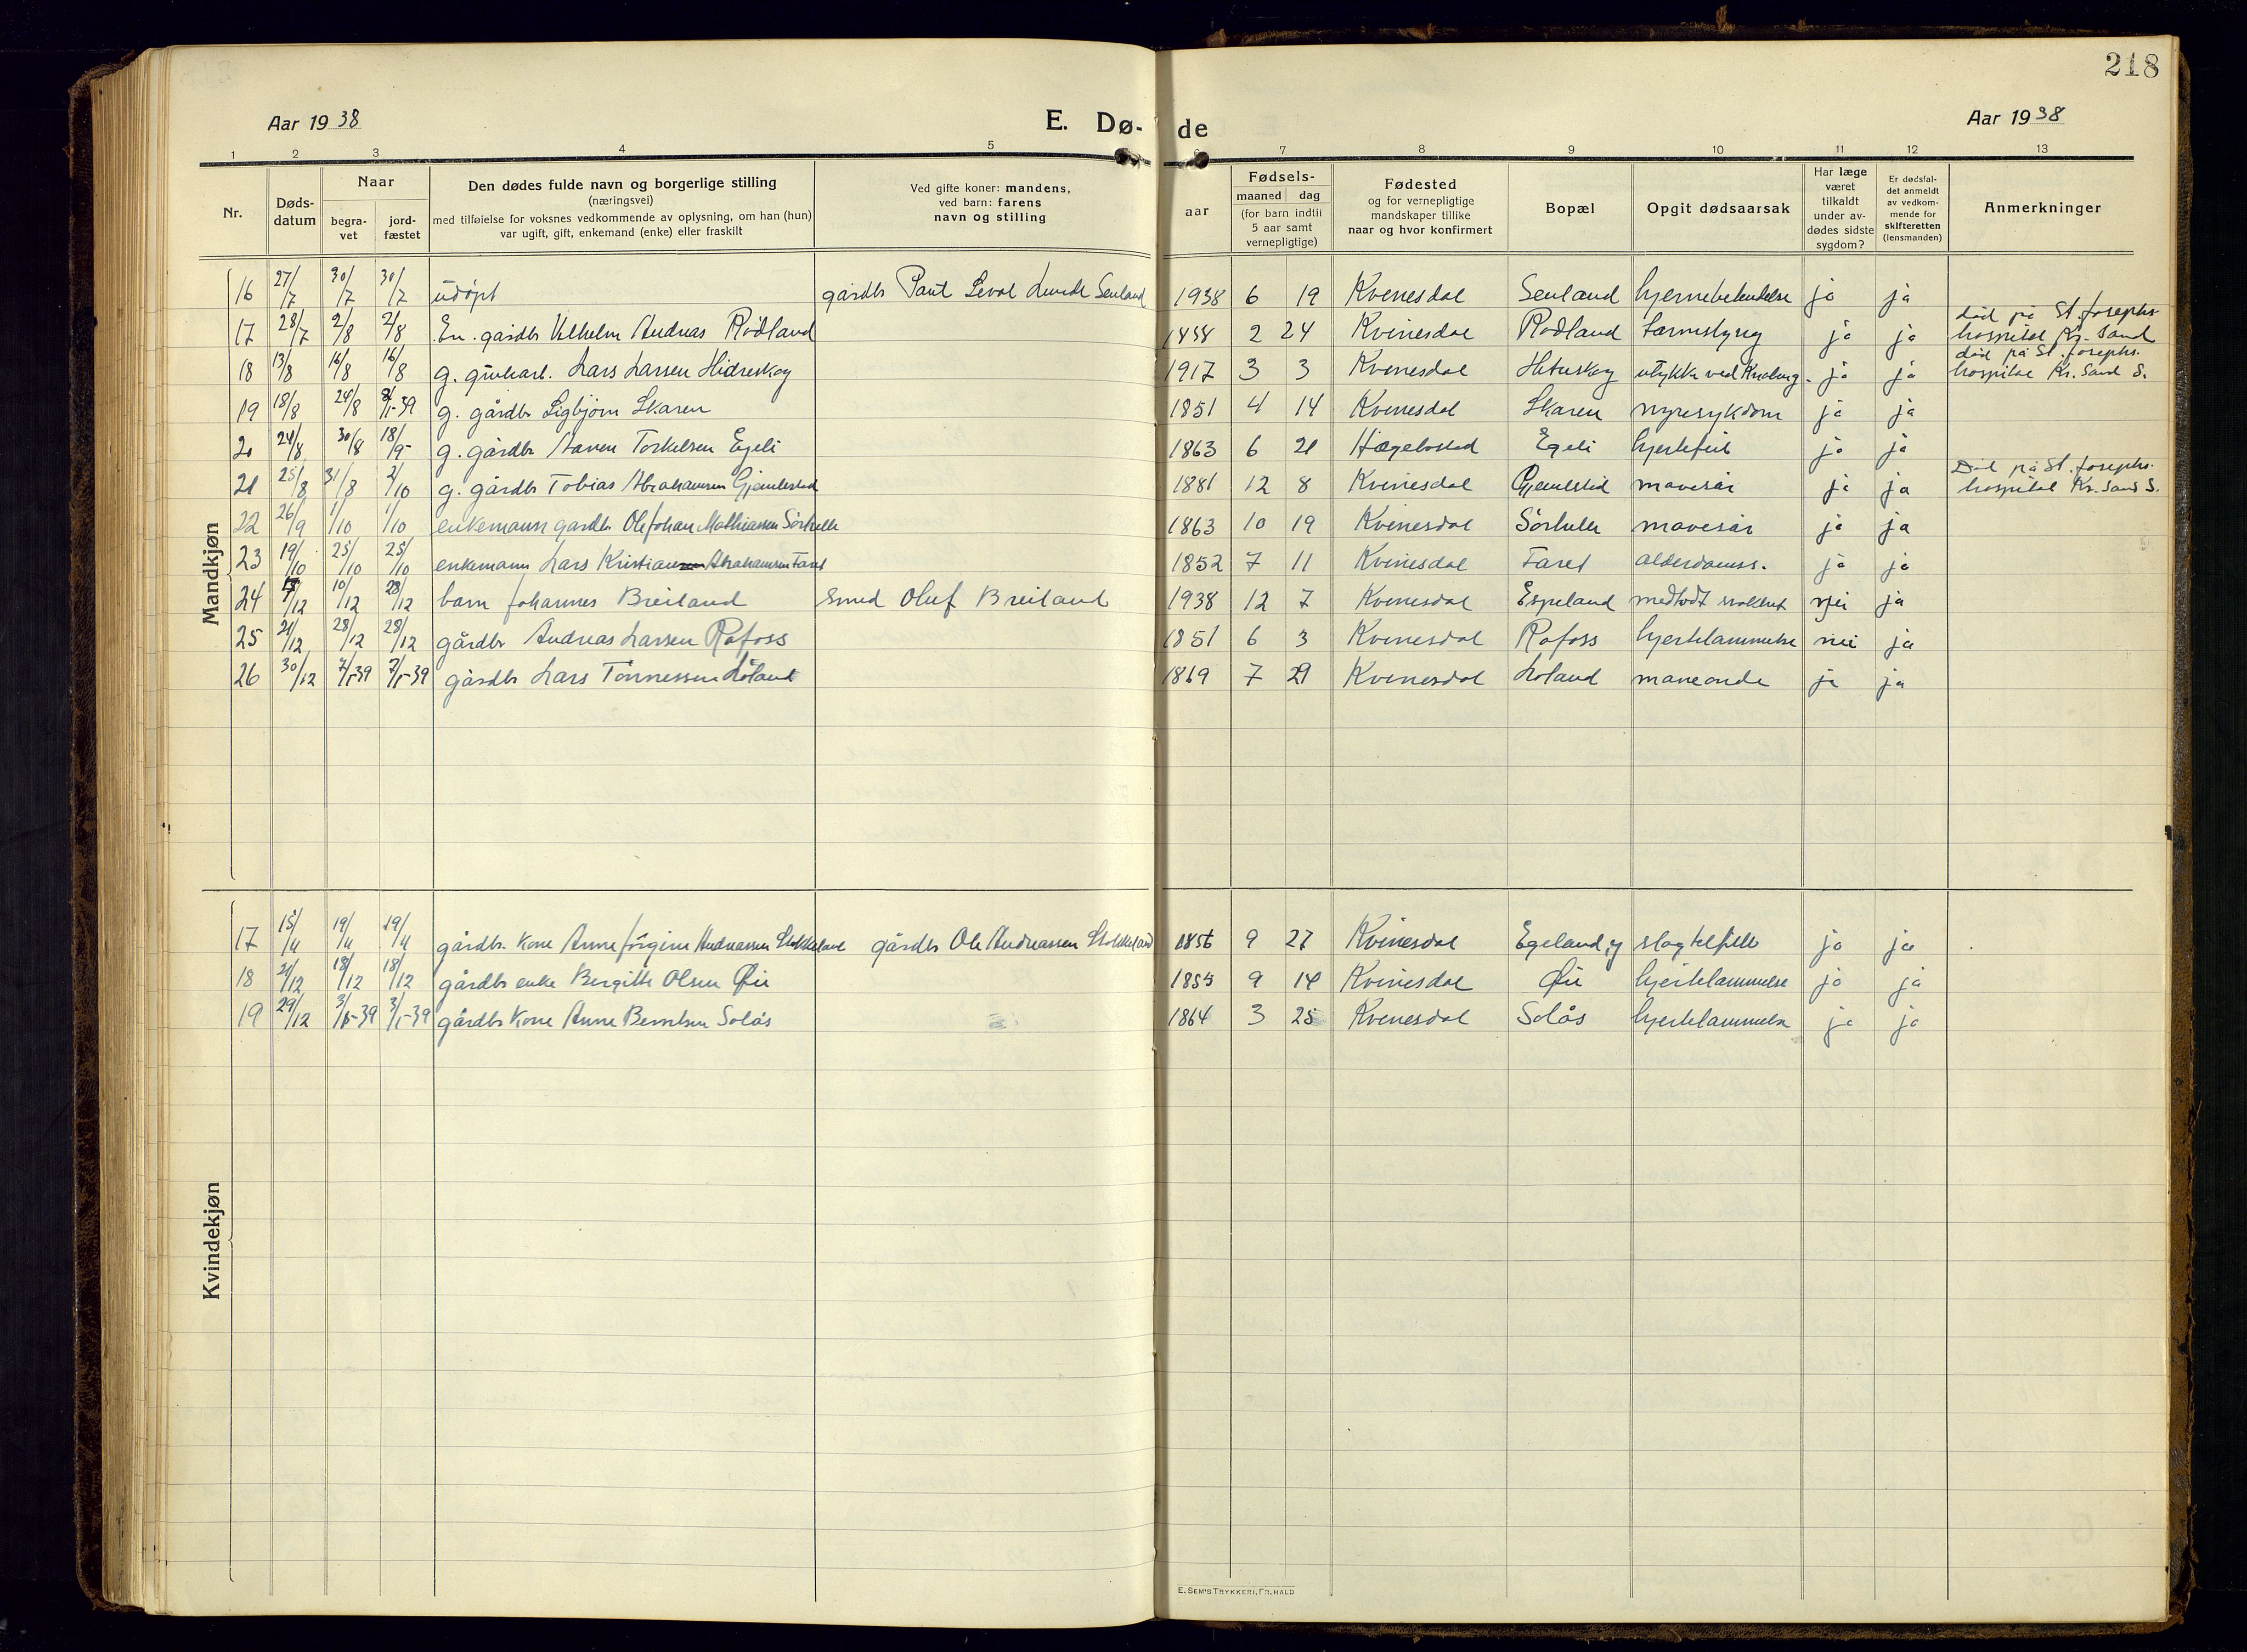 218
Aar 1938
E. Dø-
de
Aar 1938
1 2 3 4 5 6 7 8 9 10 11 12 13
Nr.
Døds-
datum
Naar
begra-
vet
jord-
fæstet
Den dødes fulde navn og borgerlige stilling
(næringsvei)
med tilføielse for voksnes vedkommende av oplysning, om han (hun)
var ugift, gift, enkemand (enke) eller fraskilt
Ved gifte koner: mandens,
ved barn: farens
navn og stilling
aar
Fødsels-
maaned dag
(for barn indtil
5 aar samt
vernepligtige)
Fødested
og for vernepligtige
mandskaper tillike
naar og hvor konfirmert
Bopæl
Opgit dødsaarsak
Har læge
været
tilkaldt
under av-
dødes sidste
sygdom?
Er dødsfal-
det anmeldt
av vedkom-
mende for
skifteretten
(lensmanden)
Anmerkninger
Mandkjøn
16 27/7 30/7 30/7 udöpt gårdbr Senland 1938 6 19 Kvinesdal Senland hjernebetendelse ja ja
17 28/7 2/8 2/8 En. gårdbr Vilhelm Andreas Rödland 1858 2 24 Kvinesdal Rödland ja ja död på St. Josephs hospital Kr. Sand
18 13/8 16/8 16/8 g. Lars Larsen Hidreskog 1917 3 3 Kvinesdal ulykke ved ja ja död på St. Josephs. hospital Kr. Sand S.
19 18/8 24/8 8/1-39 g. gårdbr Sigbjörn Skaren 1851 4 14 Kvinesdal Skaren nyresykdom ja ja
20 24/8 30/8 18/9 g. gårdbr Aanen Torkelsen Egeli 1863 6 21 Hægebostad Egeli hjertefeil ja ja
21 25/8 31/8 2/10 g. gårdbr Tobias Abrahamsen Gjemlestad 1881 12 8 Kvinesdal Gjemlestad mavesår ja ja Död på St. Josephs. hospital Kr. Sand S.
22 26/9 1/10 1/10 enkemann gardbr Ole Johan Mathiassen Sörhelle 1863 10 19 Kvinesdal Sörhelle mavesår ja ja
23 19/10 25/10 25/10 enkemann Lars Kristian Abrahamsen Faret 1852 7 11 Kvinesdal Faret alderdomss. ja ja
24 7/12 10/12 28/12 barn Johannes Breiland Smed Oluf Breiland 1938 12 7 Kvinesdal Espeland medfødt nei ja
25 21/12 28/12 28/12 gårdbr Andreas Larsen Rafoss 1851 6 3 Kvinesdal Rafoss hjertelammelse nei ja
26 30/12 7/1-39 7/1-39 gårdbr Lars Tönnessen Löland 1869 7 29 Kvinesdal Löland maveonde ja ja
Kvindekjøn
17 15/11 19/11 19/11 gårdbr. kone Anne Jörgine Andreassen Stokkeland gårdbr Ole Andreassen Stokkeland 1856 9 27 Kvinesdal Egeland, y slagtilfelle ja ja
18 21/12 18/12 18/12 gårdbr enke Bergitte Olsen Øie 1853 9 14 Kvinesdal Øie hjertelammelse ja ja
19 29/12 3/1-39 3/1-39 gårdbr kone Anne Berntsen Solås 1864 3 25 Kvinesdal Solås hjertelammelse ja ja
E. SEM'S TRYKKERI, FR. HALD